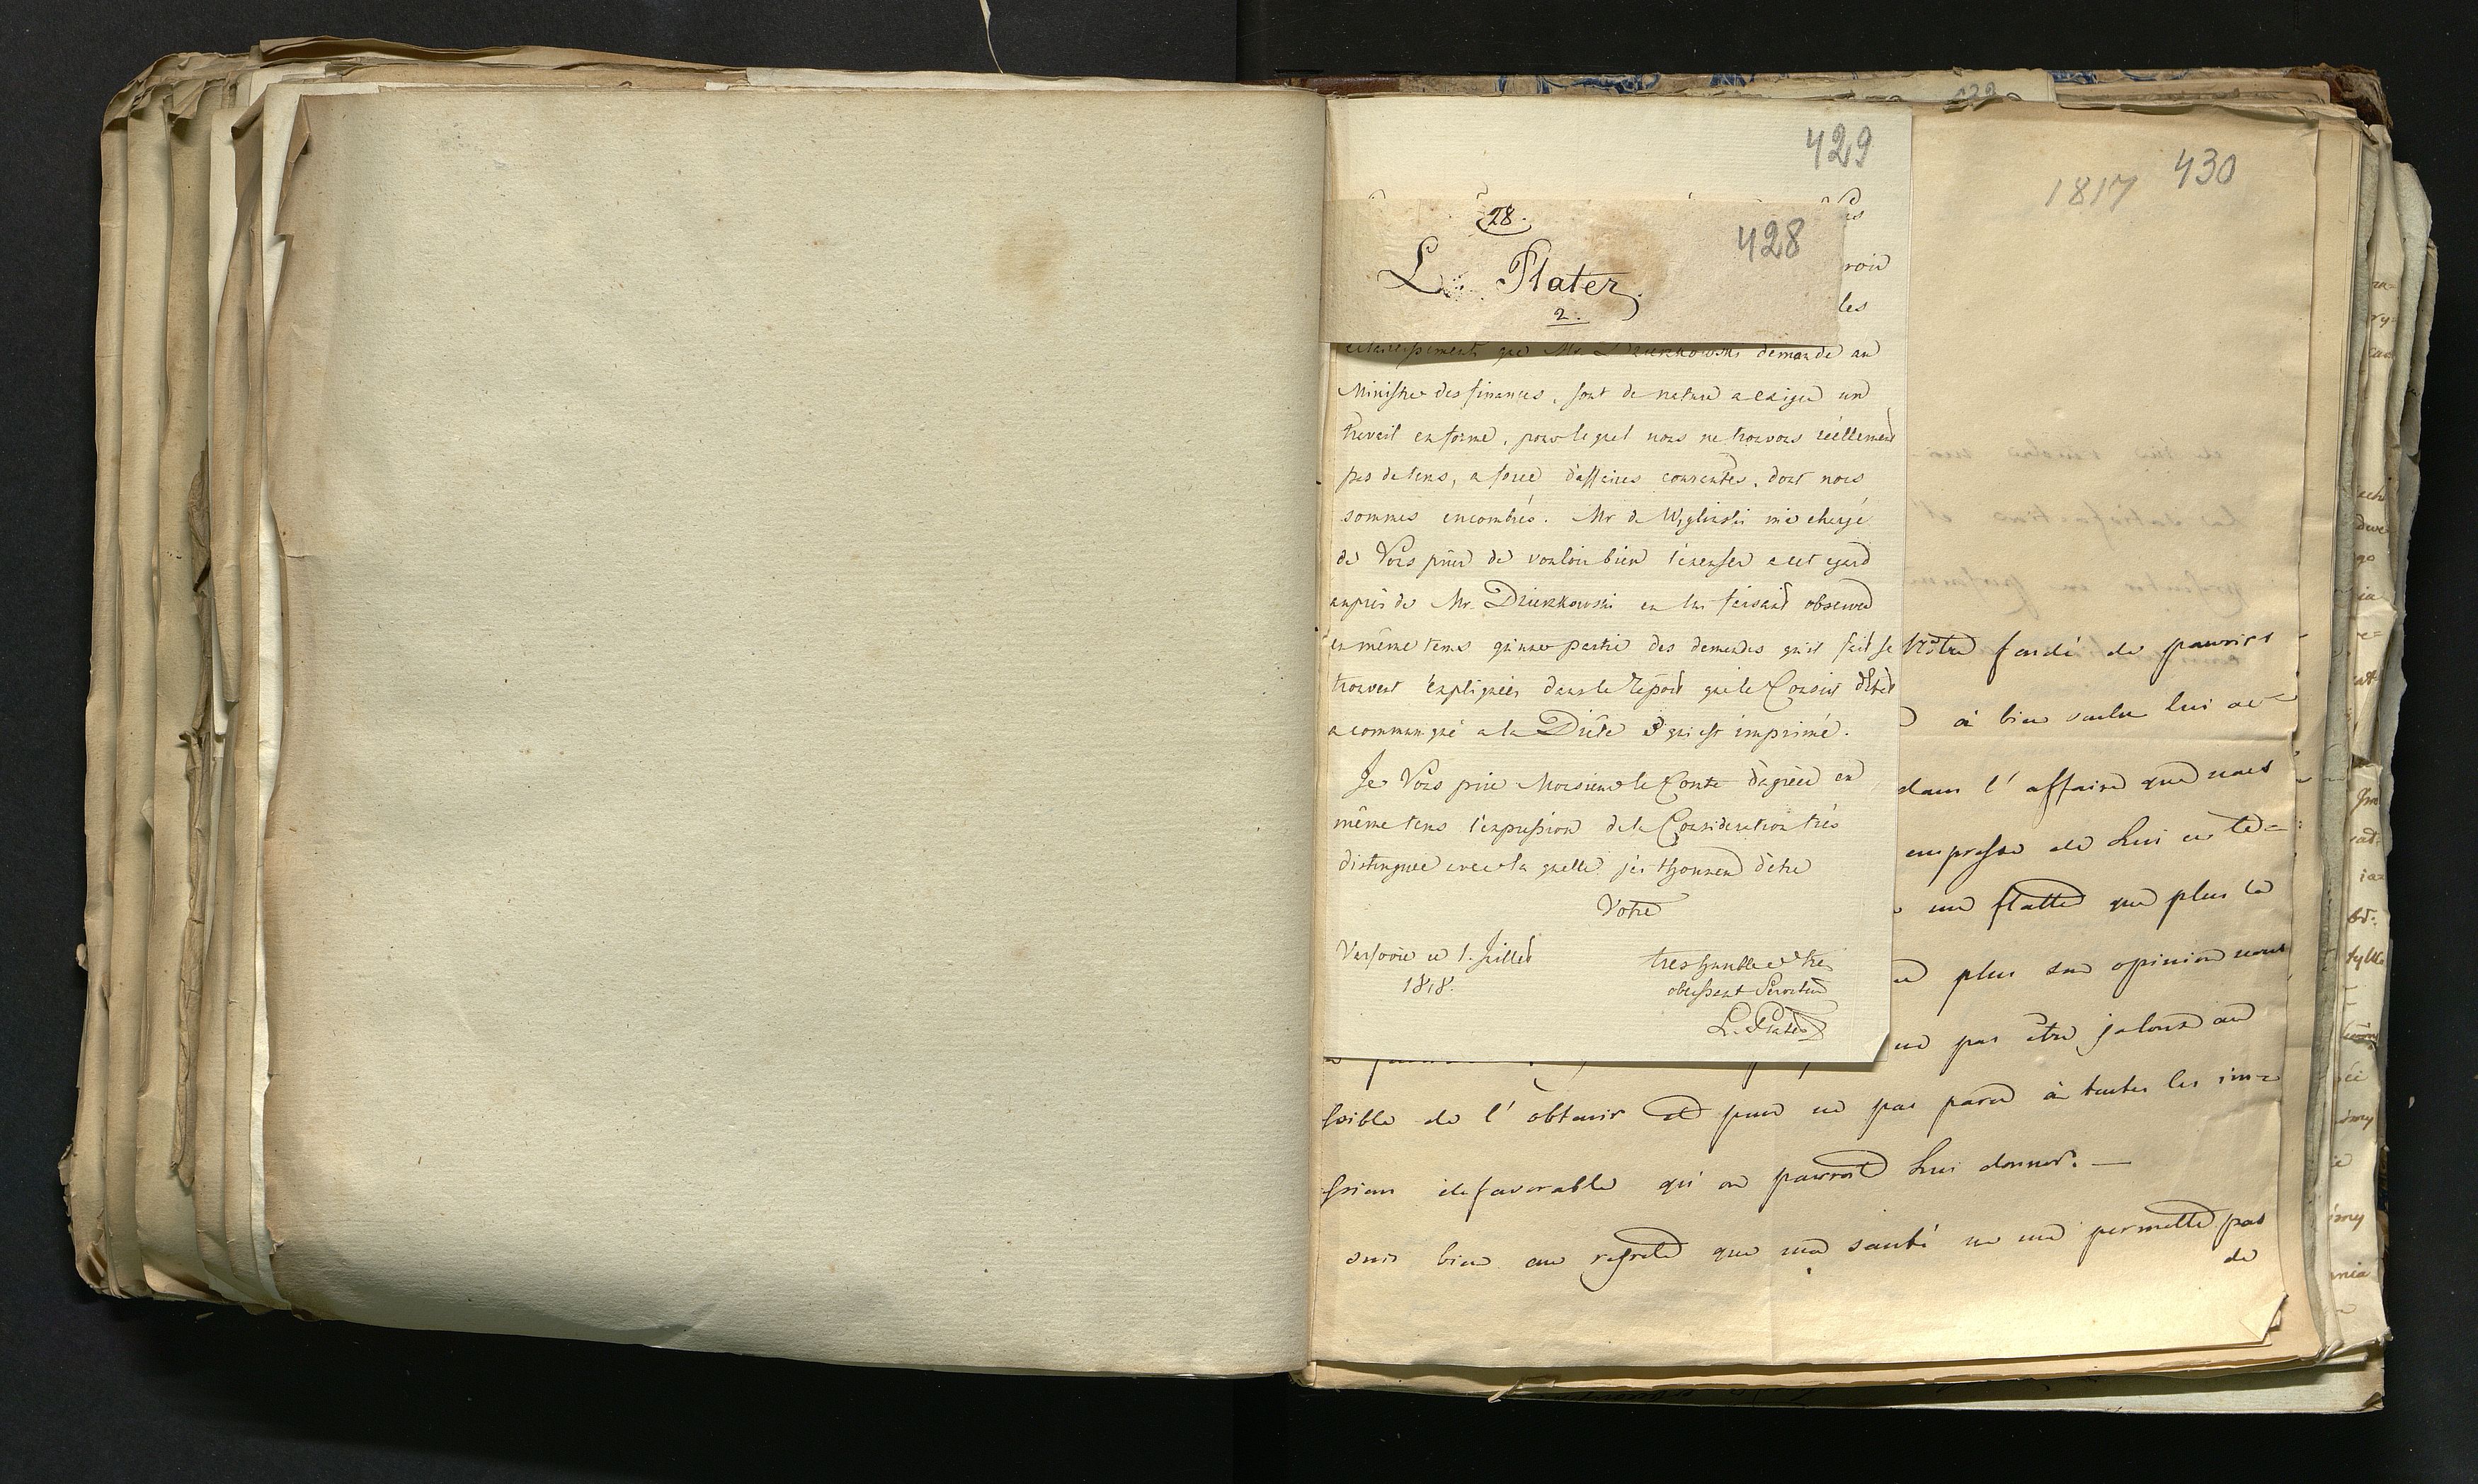 429
28.
428
L. Plater.
2.
les
eclaircissements que Mr. Dzierzkowski demande au
Ministre des finances, sont de nature a exiger un
travail en forme, pour lequel nous ne trouvons réellement
pas de tems, a force d'affaires courantes, dont nous
sommes encombrés. Mr de Węgleński m'a chargé
de Vous prier de vouloir bien l'excuser a cet egard
auprès de Mr. Dzierzkowski en lui faisant observer
en même tems qu'une partie des demandes qu'il fait se
trouvent expliquées dans le Report que le Conseil d'Etat
a communiqué a la Diète & qui est imprimé.
Je Vous prie Monsieur le Comte d'agréer en
même tems l'expression de la Consideration très
distinguée avec la quelle j'ai l'honneur d'être
Votre
Varsovie ce 1. Juillet
1818.
tres humble et tres
obeissant Serviteur
L. Plater
1817
430
Nôtre fondé de pouvoirs
à bien voulu lui ac-
dans l'affaire que nous
empresse de Lui en té=
me flatte que plus la
plus son opinion nous
pas être jaloux au
ssible de l'obtenir et pour ne pas parer à toutes les im=
ssions defavorable qu'on pourroit Lui donner. —
suis bien au regret que ma santé ne me permette pas
de